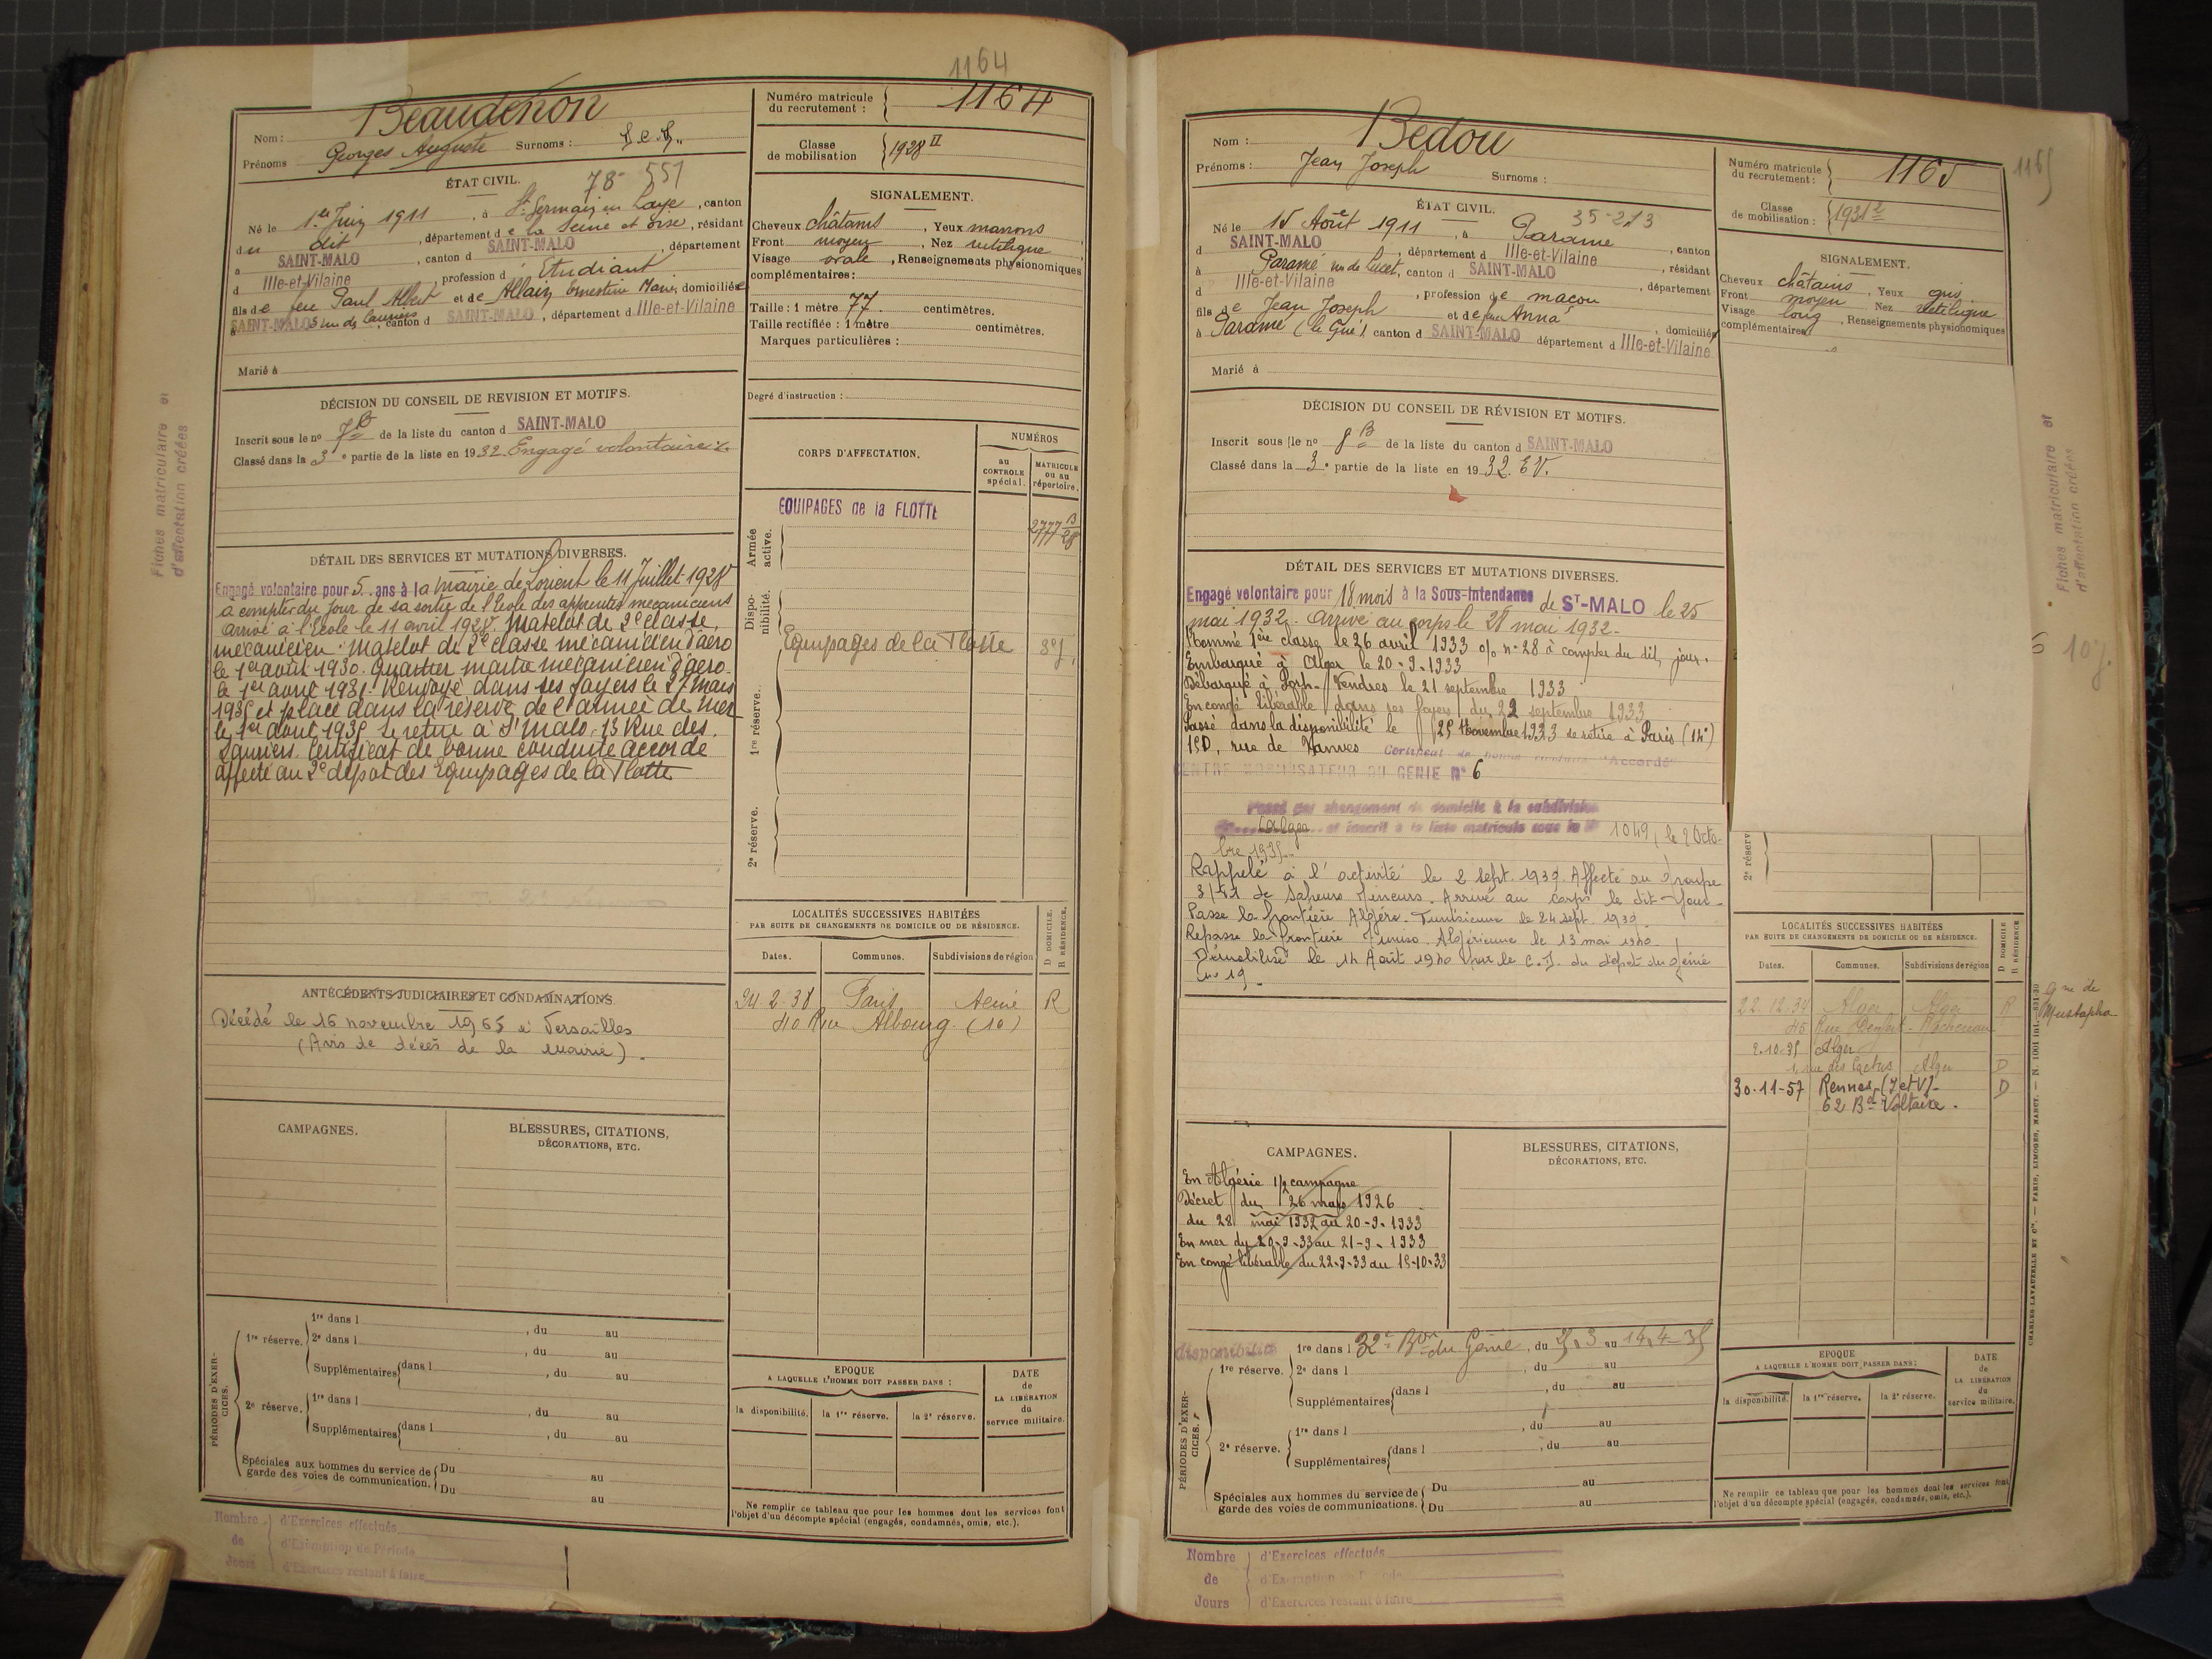 1164
Nom : Beaudenon
Prénoms Georges Auguste Surnoms :
Numéro matricule du recrutement : 1164
Classe de mobilisation 1928 II
ÉTAT CIVIL.
78 - 551
Né le 1er Juin 1911, à St Germain en Laye, canton
du dit, département de la Seine et Oise, résidant
à SAINT-MALO, canton d SAINT-MALO, département
d Ille-et-Vilaine, profession d' Etudiant
fils de feu Paul Albert et de Allain Ernestine Marie, domiciliée
à SAINT-MALO 3 rue des lauriers, canton d SAINT-MALO, département d Ille-et-Vilaine
Marié à
SIGNALEMENT.
Cheveux châtains, Yeux marrons
Front moyen, Nez rectiligne
Visage ovale, Renseignements physionomiques
complémentaires :
Taille : 1 mètre 77 centimètres.
Taille rectifiée : 1 mètre centimètres.
Marques particulières :
Degré d'instruction :
DÉCISION DU CONSEIL DE REVISION ET MOTIFS.
Inscrit sous le no 7 B de la liste du canton d SAINT-MALO
Classé dans la 3e partie de la liste en 1932 Engagé volontaire
CORPS D'AFFECTATION.
NUMÉROS
au CONTROLE spécial.
MATRICULE ou au répertoire.
Armée active.
EQUIPAGES de la FLOTTE
2777 B 28
Dispo-nibilité.
Equipages de la Flotte
1re réserve.
2e réserve.
DÉTAIL DES SERVICES ET MUTATIONS DIVERSES.
Engagé volontaire pour 5 ans à la Mairie de Lorient le 11 Juillet 1928
à compter du jour de sa sortie de l'Ecole des apprentis mecaniciens
arrivé à l'Ecole le 11 avril 1928. Matelot de 2e classe,
mecanicien. Matelot de 2e classe mécanicien d'aéro
le 1er août 1930. Quartier maitre mecanicien d'aéro
le 1er avril 1931. Renvoyé dans ses foyers le 27 mars
1935 et placé dans la réserve de l'armée de mer
le 1er août 1935 se retire à St Malo, 13 Rue des
Lauriers. Certificat de bonne conduite accordé
affecté au 2e dépot des Equipages de la Flotte
LOCALITÉS SUCCESSIVES HABITÉES
PAR SUITE DE CHANGEMENTS DE DOMICILE OU DE RÉSIDENCE.
D DOMICILE. R RÉSIDENCE.
Dates. Communes. Subdivisions de région
24.2.38 Paris Seine R
40 Rue Albourg (10)
ANTÉCÉDENTS JUDICIAIRES ET CONDAMNATIONS
Décédé le 16 novembre 1965 à Versailles
(Avis de décès de la mairie).
CAMPAGNES.
BLESSURES, CITATIONS,
DÉCORATIONS, ETC.
PÉRIODES D'EXER-CICES.
1re réserve.
1re dans l , du au
2e dans l , du au
Supplémentaires dans l , du au
2e réserve.
1re dans l , du au
Supplémentaires dans l , du au
Spéciales aux hommes du service de garde des voies de communication.
Du au
Du au
EPOQUE
A LAQUELLE L'HOMME DOIT PASSER DANS :
la disponibilité. la 1re réserve. la 2e réserve.
DATE de LA LIBÉRATION du service militaire.
Ne remplir ce tableau que pour les hommes dont les services font
l'objet d'un décompte spécial (engagés, condamnés, omis, etc.).
Nombre de Jours
d'Exercices effectués
d'Exemption de Période
d'Exercices restant à faire
Fiches matriculaire et
d'affectation créées
Nom : Bedou
Prénoms : Jean Joseph Surnoms :
Numéro matricule du recrutement : 1165
1165
Classe de mobilisation : 1931 2
ÉTAT CIVIL.
35-213
Né le 15 Août 1911, à Paramé, canton
d SAINT-MALO, département d Ille-et-Vilaine, résidant
à Paramé, canton d SAINT-MALO, département
d Ille-et-Vilaine, profession de maçon
fils de Jean Joseph et de feue Anna, domiciliés
à Paramé (le Gué) canton d SAINT-MALO département d Ille-et-Vilaine
Marié à
SIGNALEMENT.
Cheveux châtains, Yeux gris
Front moyen Nez rectiligne
Visage long, Renseignements physionomiques
complémentaires
DÉCISION DU CONSEIL DE RÉVISION ET MOTIFS.
Inscrit sous le no 8 B de la liste du canton d SAINT-MALO
Classé dans la 3e partie de la liste en 1932. E V.
DÉTAIL DES SERVICES ET MUTATIONS DIVERSES.
Engagé volontaire pour 18 mois à la Sous-Intendance de ST-MALO le 25
mai 1932. Arrivé au corps le 28 mai 1932.
Nommé 1ère classe le 26 avril 1933 o/o n° 28 à compter du dit jour.
Embarqué à Alger le 20-9-1933
Débarqué à Port-Vendres le 21 septembre 1933
En congé libérable dans ses foyers du 22 septembre 1933
Passé dans la disponibilité le 25 Novembre 1933 se retire à Paris (14e)
150, rue de Vanves Certificat de bonne conduite "Accordé"
CENTRE MOBILISATEUR DU GENIE N° 6
Passé par changement de domicile à la subdivision
Alger et inscrit à la liste matricule sous le N° 1049, le 2 Octo-
bre 1935.
Rappelé à l'activité le 2 sept. 1939. Affecté au Groupe
de Sapeurs Mineurs. Arrivé au corps le dit jour.
Passe la frontière Algéro-Tunisienne le 24 sept. 1939.
Repasse la frontière Tuniso-Algérienne le 13 mai 1940.
Démobilisé le 14 Août 1940 par le C.D. du dépôt du Génie
n° 19.
2e réserv
LOCALITÉS SUCCESSIVES HABITÉES
PAR SUITE DE CHANGEMENTS DE DOMICILE OU DE RÉSIDENCE.
D DOMICILE R RÉSIDENCE
Dates. Communes. Subdivisions de région
22.12.34 Alger Alger R
45 Rue Denfert-Rochereau
2.10.35 Alger
rue des Cactus Alger D
30-11-57 Rennes (I et V) D
62 Bd Voltaire.
Mustapha
10 j.
CAMPAGNES.
En Algérie 1/2 campagne
Décret du 26 mars 1926
du 28 mai 1932 au 20-9-1933
En mer du 20-9-33 au 21-9-1933
En congé libérable du 22-9-33 au 15-10-33
BLESSURES, CITATIONS,
DÉCORATIONS, ETC.
PÉRIODES D'EXER-CICES.
disponibilité
1re réserve.
1re dans l 32e Bon du Génie, du 25-3 au 14-4-35
2e dans l , du au
Supplémentaires dans l , du au
2e réserve.
1re dans l , du au
Supplémentaires dans l , du au
Spéciales aux hommes du service de garde des voies de communications.
Du au
Du au
EPOQUE
A LAQUELLE L'HOMME DOIT PASSER DANS :
la disponibilité. la 1re réserve. la 2e réserve.
DATE de LA LIBÉRATION du service militaire.
Ne remplir ce tableau que pour les hommes dont les services font
l'objet d'un décompte spécial (engagés, condamnés, omis, etc.).
Nombre de Jours
d'Exercices effectués
d'Exemption de Période
d'Exercices restant à faire
Fiches matriculaire et
d'affectation créées
CHARLES-LAVAUZELLE ET Cie. — PARIS, LIMOGES, NANCY. — N. 1001 Int.